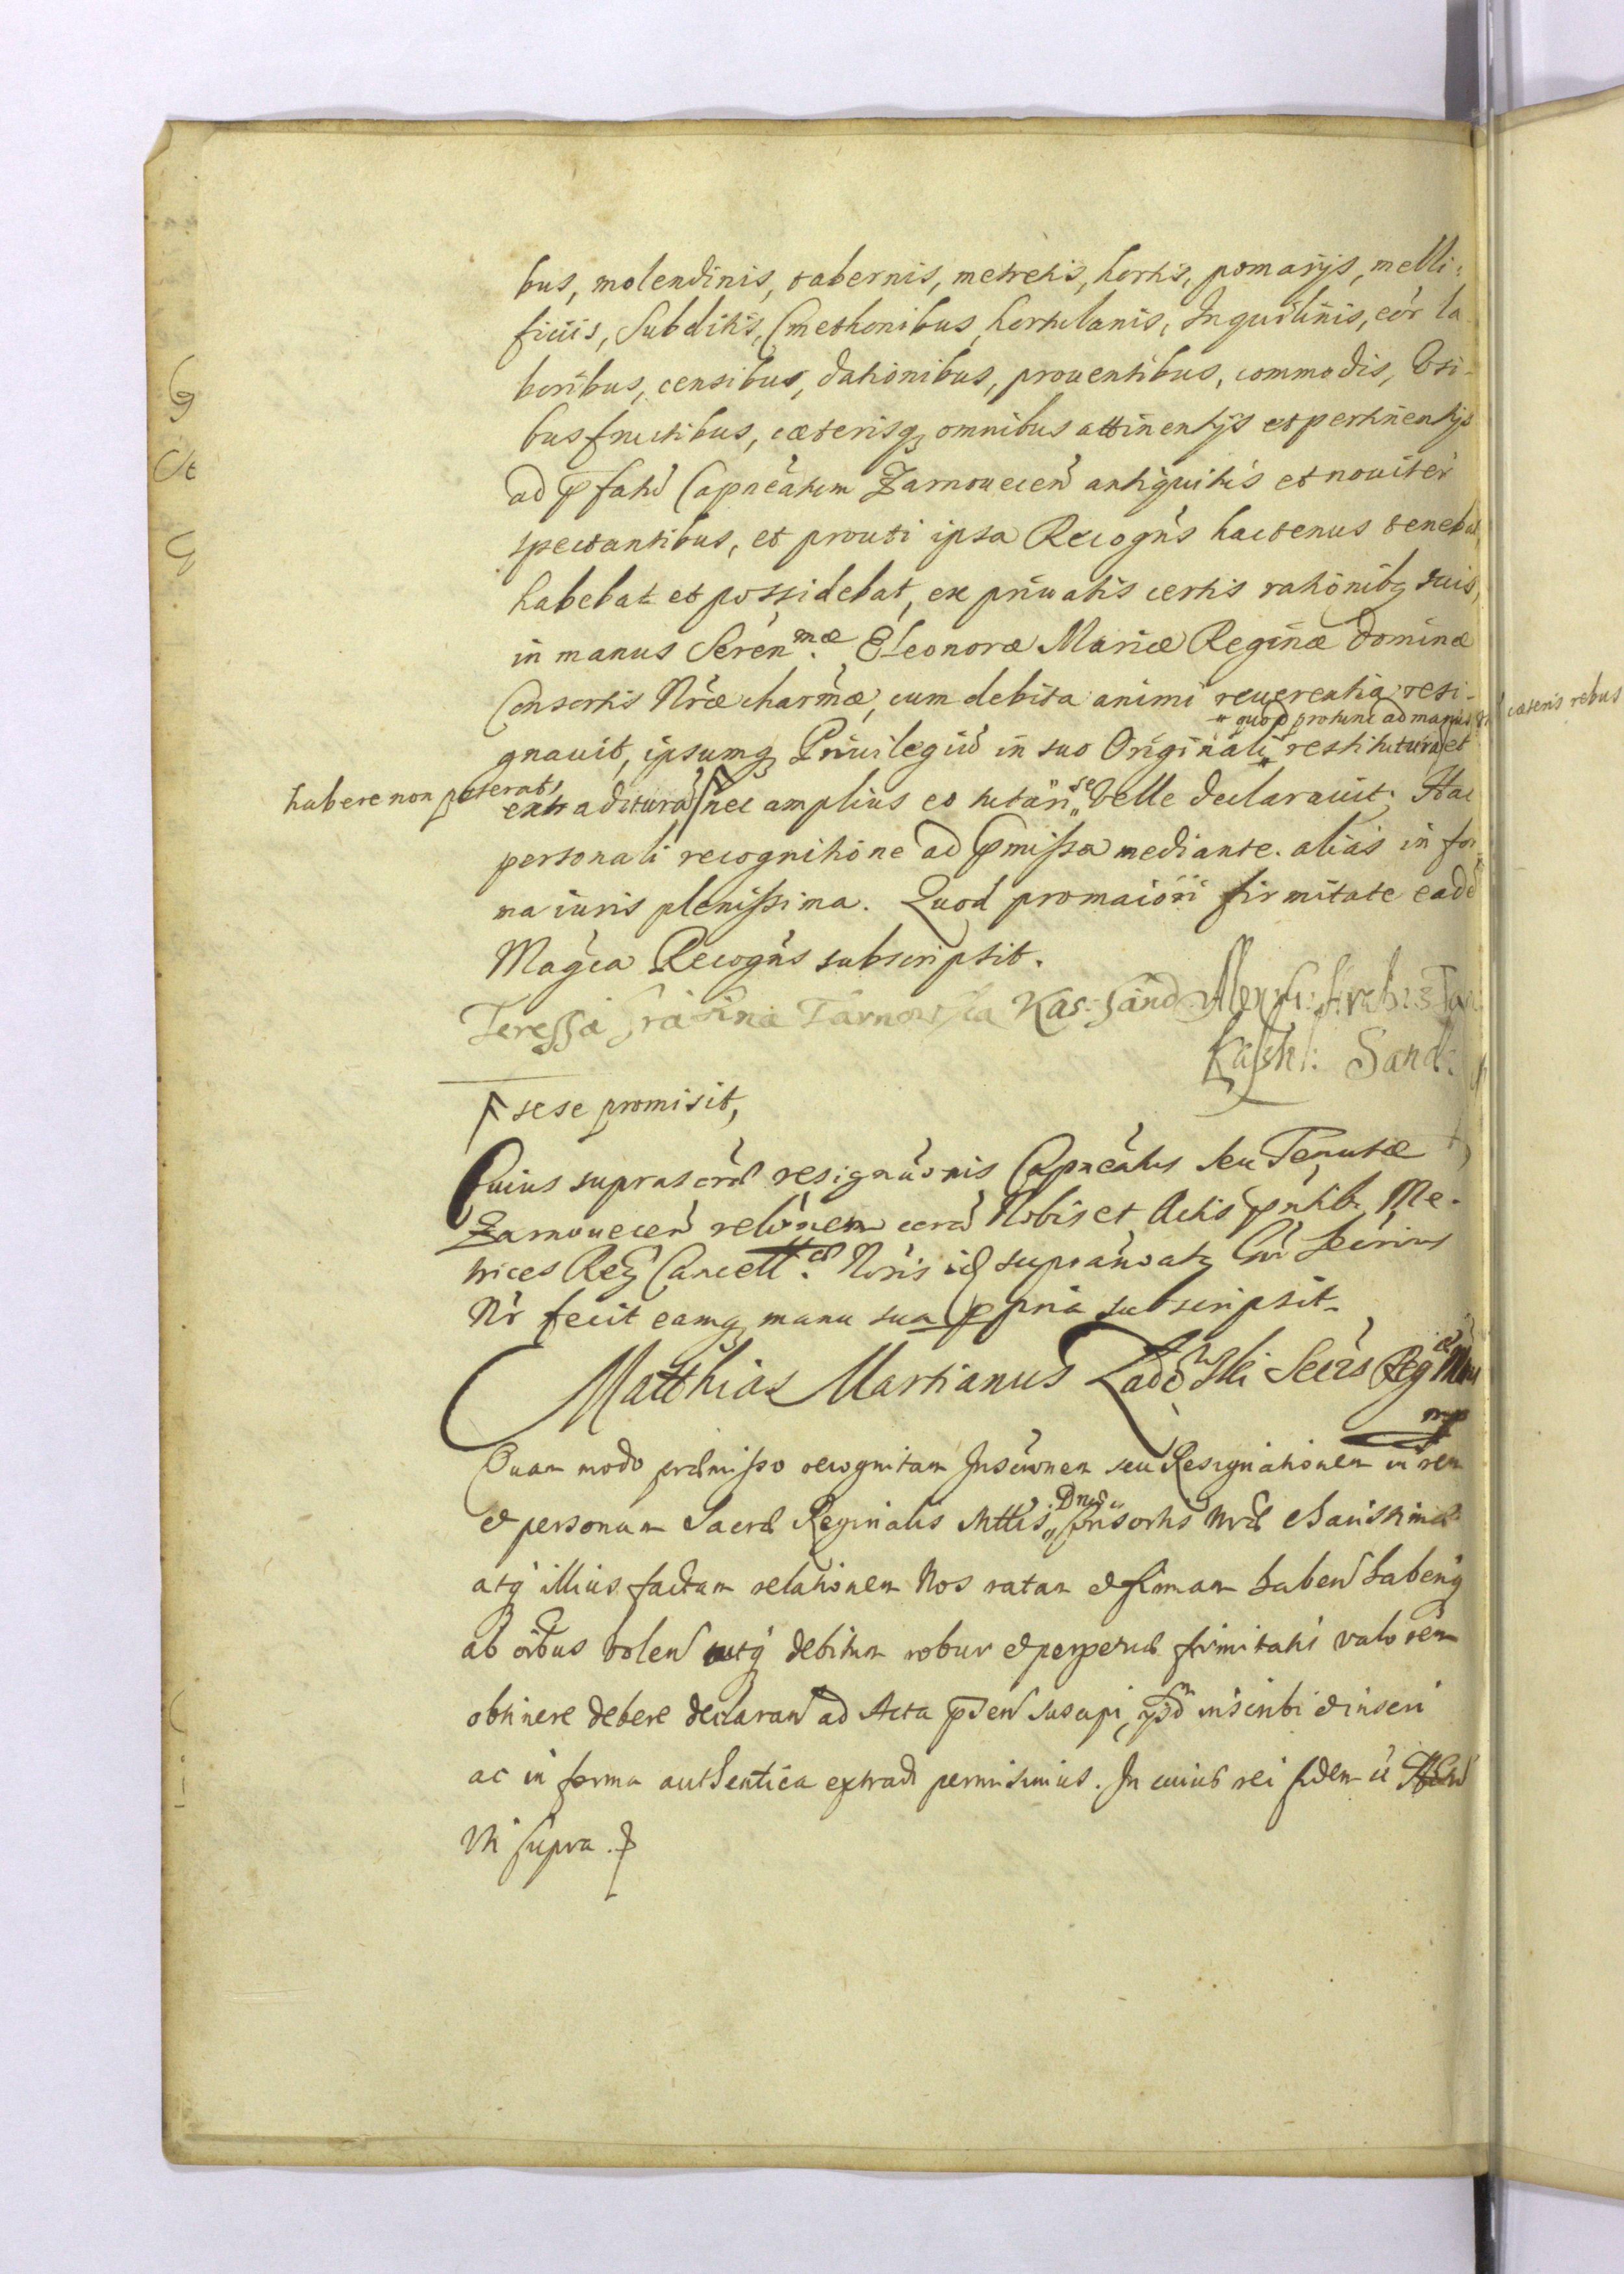 bus, molendinis, tabernis, metretis, hortis, pomarijs, melli-
ficiis, Subditis, Cmethonibus, hortulanis, Inquilinis, eor̃ la
boribus, censibus, dationibus, prouentibus, commodis, Vsi-
busfructibus, cæterisq; omnibus attinentijs et pertinentijs
ad p̃fatũ Capñeatum Zarnouecen̄ antiquitùs et nouiter
spectantibus, et prouti ipsa Recogñs hactenus tenebat,
habebat et possidebat, ex priuatis certis rationibq; suis,
in manus Seren.mæ Eleonoræ Mariæ Reginæ Dominæ
Consortis Nr̃æ charm̃æ, cum debita animi reuerentia resi-
quod protunc ad manus cæteris rebus
gnauit, ipsumq; Priuilegiũ in suo Originali restiturã et
habere non poterat
extraditurã nec amplius eo tutari se velle declarauit. Hac
personali recognitione ad p̃missa mediante. alias in for
ma iuris plenissima. Quod pro maiori firmitate eadẽ
Magc̃a Recogñs subscripsit.
Teressa Tarnowska Kas: Sand
Kasht: Sand:
sese promisit,
Cuius suprascr̃æ resignãonis Capñeatus seu Tenutæ
Zarnouecen̄ relõnem corã Nobis et Actis pñtib. Me-
trices Reg̃ Cancell. Nõris supranõatq;
Nr̃ fecit eamq; manu sua p̃pria subscripsit.
Matthias Martianus Secr̃s Reg
mp
Quam modo præmisso recognitam Inscr̃onem seu Resignationem in rem
et personam Sacræ Reginalis Mttis Dnæ Consortis Nræ Charissimæ
atq; illius factam relationem Nos ratam et firmam haben haberiq;
ab oĩbus volen̄ utq; debitum robur et perpetuæ firmitatis valorem
obtinere debere declaran̄ ad Acta p̃sen̄ suscipi, inscribi et inseri
ac in forma authentica extradi permisimus. In cuius rei fidem
Vti supra.